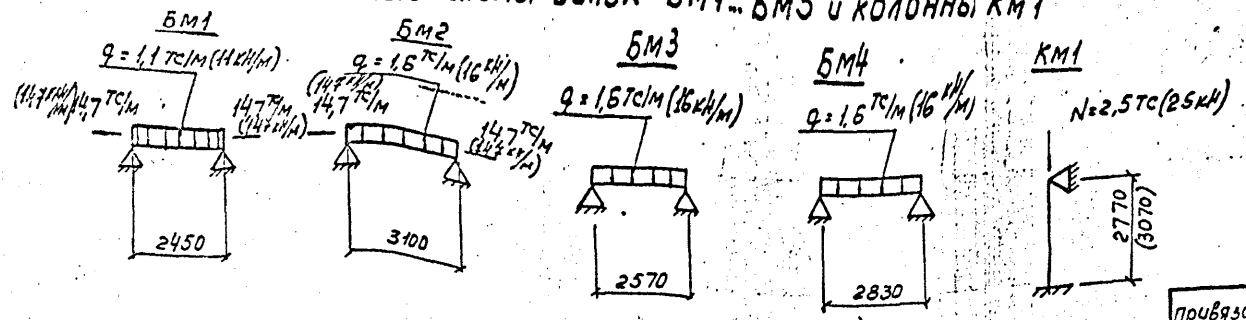 БМ1...БМ5 и колонны КМ1
БМ1
q = 1,1 тс/м (11 кН/м)
(147 кН/м) 14,7 тс/м
14,7 тс/м
(147 кН/м)
2450
БМ2
q = 1,6 тс/м (16 кН/м)
(147 кН/м)
14,7 тс/м
14,7 тс/м
(147 кН/м)
3100
БМ3
q = 1,6 тс/м (16 кН/м)
2570
БМ4
q = 1,6 тс/м (16 кН/м)
2830
КМ1
N = 2,5 тс (25 кН)
2770
(3070)